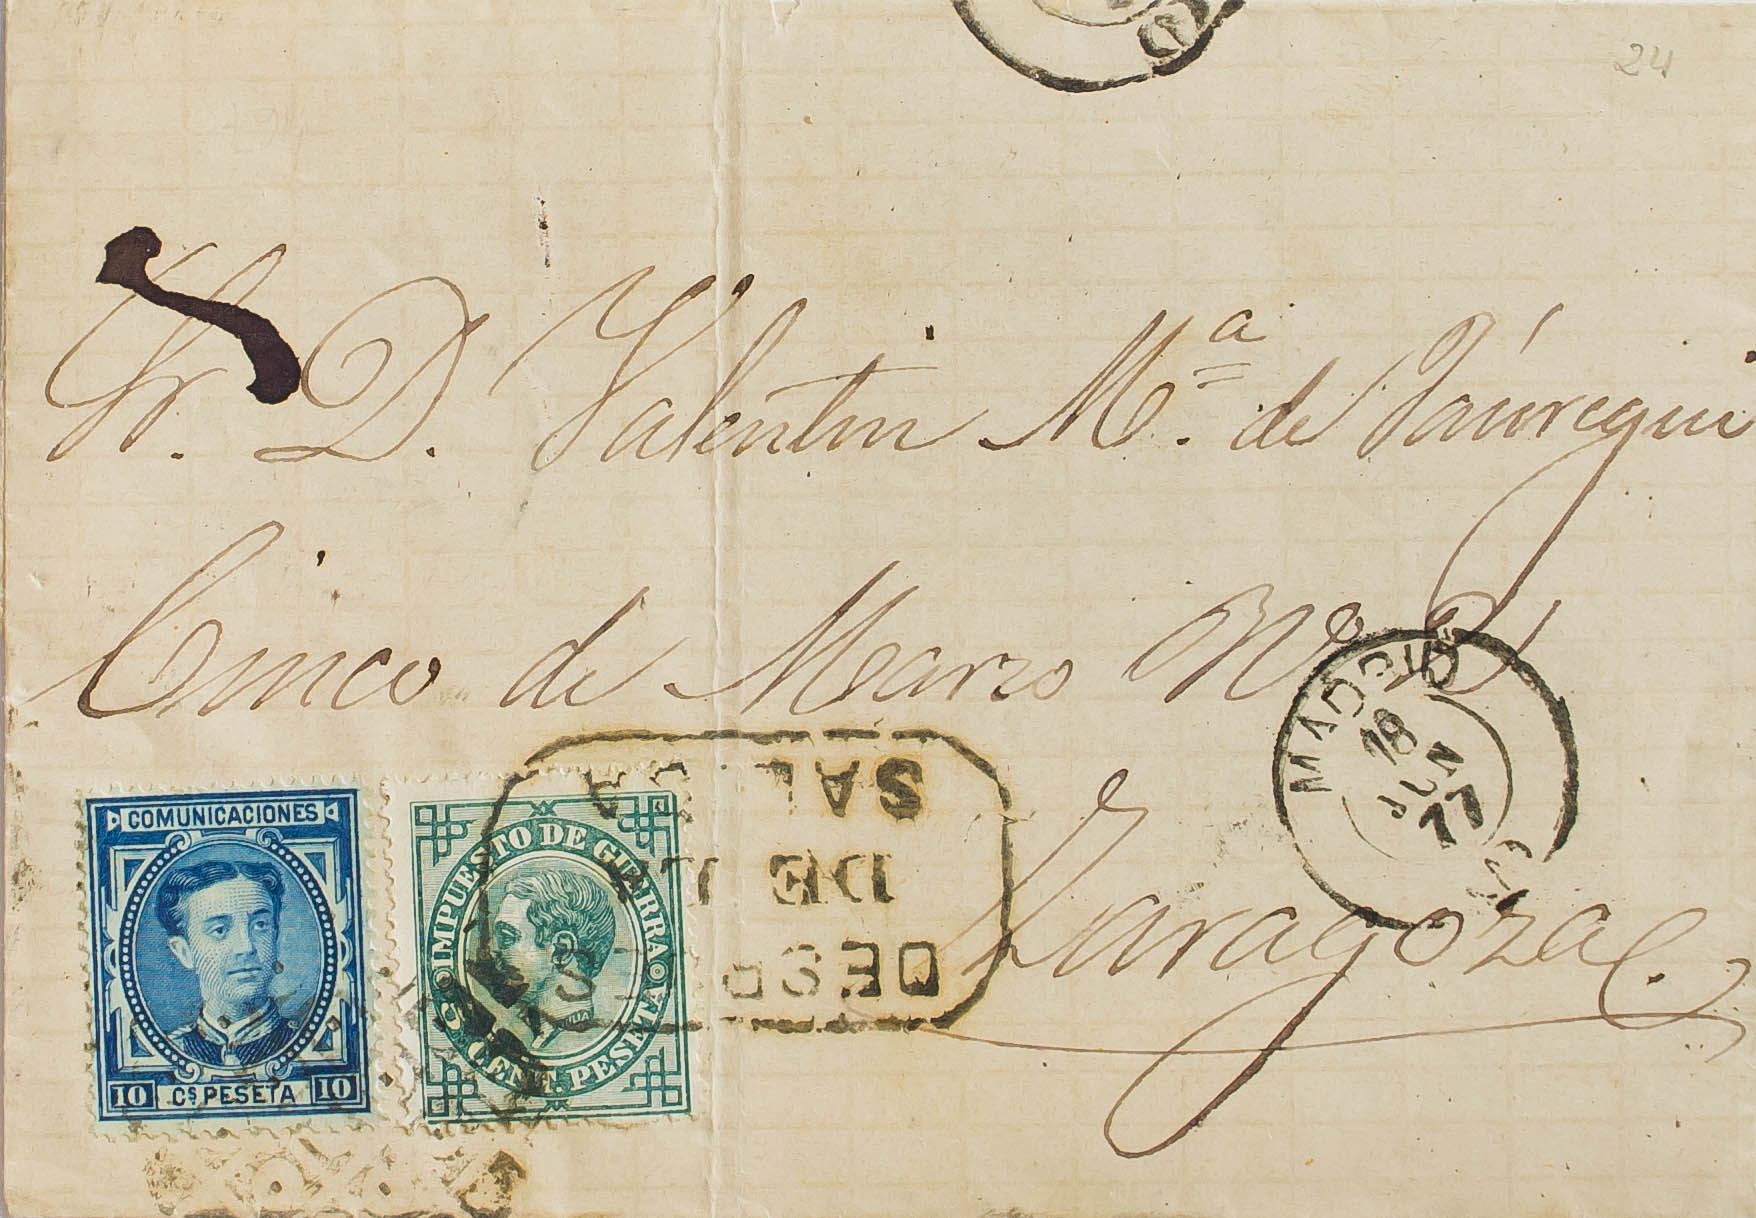 24
Sr. D. Valentin Mª. de Jáuregui
Cinco de Marzo Nº 2
Zaragoza
MADRID
18
JUN
77
COMUNICACIONES
10 Cs PESETA 10
IMPUESTO DE GUERRA
5 CENT. PESETA
DESPUES
DE LA
SALIDA